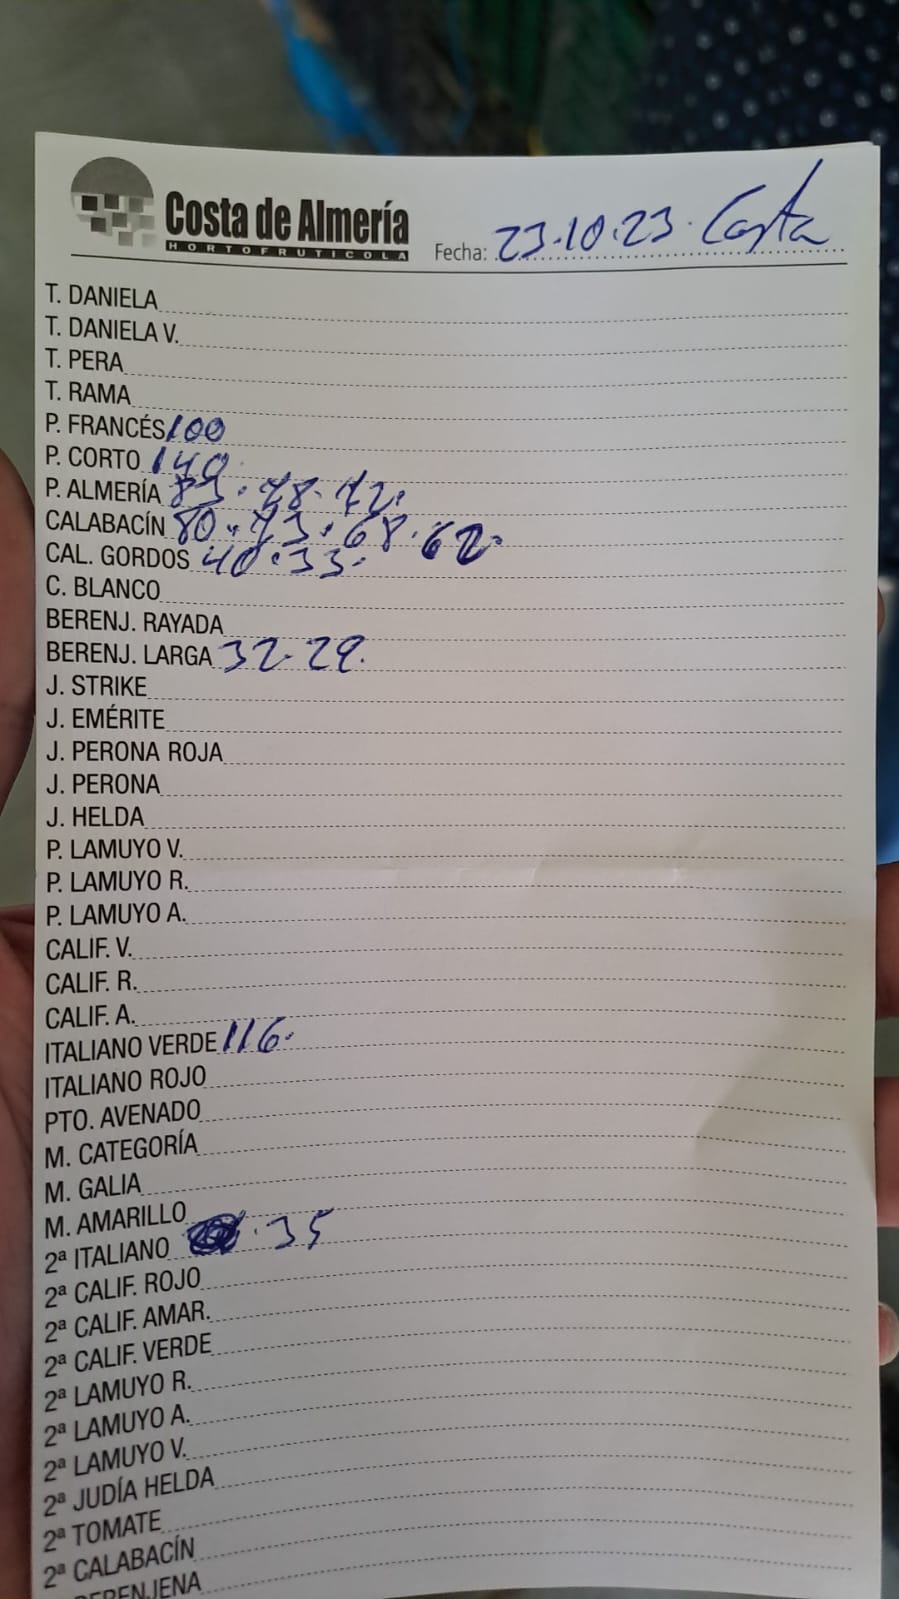 Costa de Almería
HORTOFRUTICOLA
Fecha: 23.10.23. Costa
T. DANIELA
T. DANIELA V.
T. PERA
T. RAMA
P. FRANCÉS 100
P. CORTO 140.
P. ALMERÍA 83. 78. 72.
CALABACÍN 80. 73. 68. 62.
CAL. GORDOS 40. 33.
C. BLANCO
BERENJ. RAYADA
BERENJ. LARGA 32. 29.
J. STRIKE
J. EMÉRITE
J. PERONA ROJA
J. PERONA
J. HELDA
P. LAMUYO V.
P. LAMUYO R.
P. LAMUYO A.
CALIF. V.
CALIF. R.
CALIF. A.
ITALIANO VERDE 116.
ITALIANO ROJO
PTO. AVENADO
M. CATEGORÍA
M. GALIA
M. AMARILLO
2ª ITALIANO . 35
2ª CALIF. ROJO
2ª CALIF. AMAR.
2ª CALIF. VERDE
2ª LAMUYO R.
2ª LAMUYO A.
2ª LAMUYO V.
2ª JUDÍA HELDA
2ª TOMATE
2ª CALABACÍN
BERENJENA